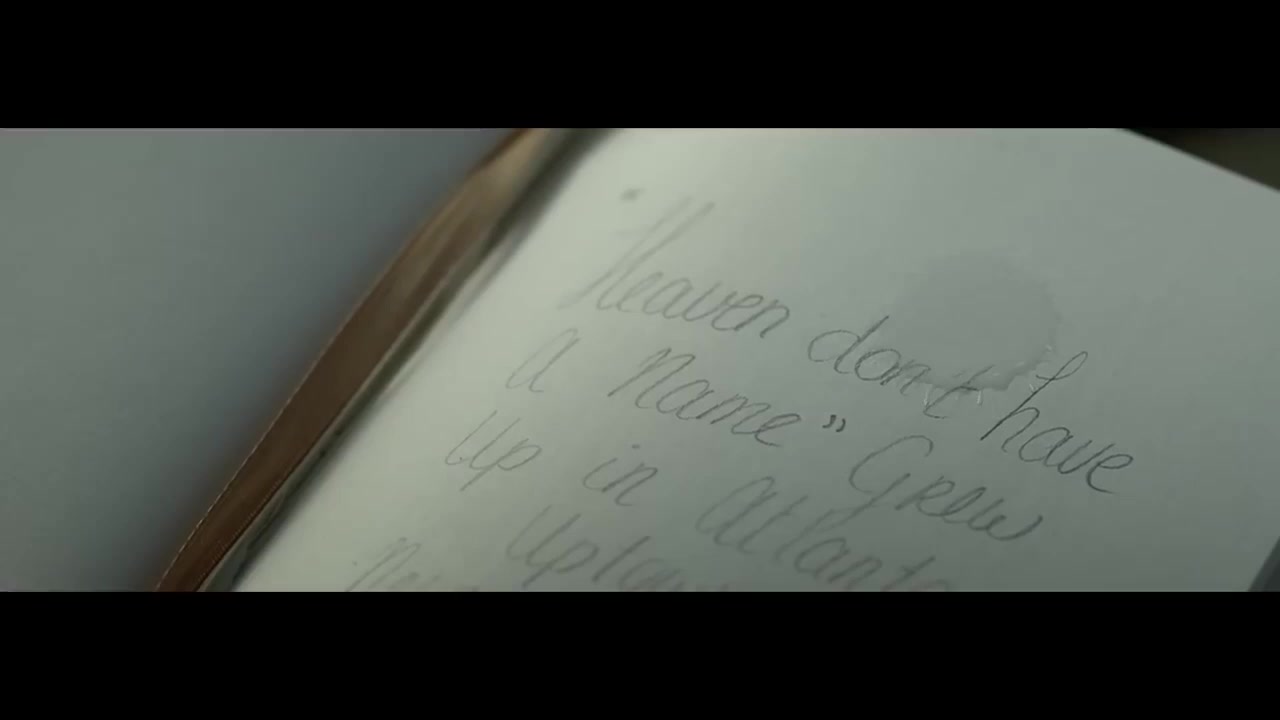 "Heaven don't have
a name" Grew
up in Atlanta